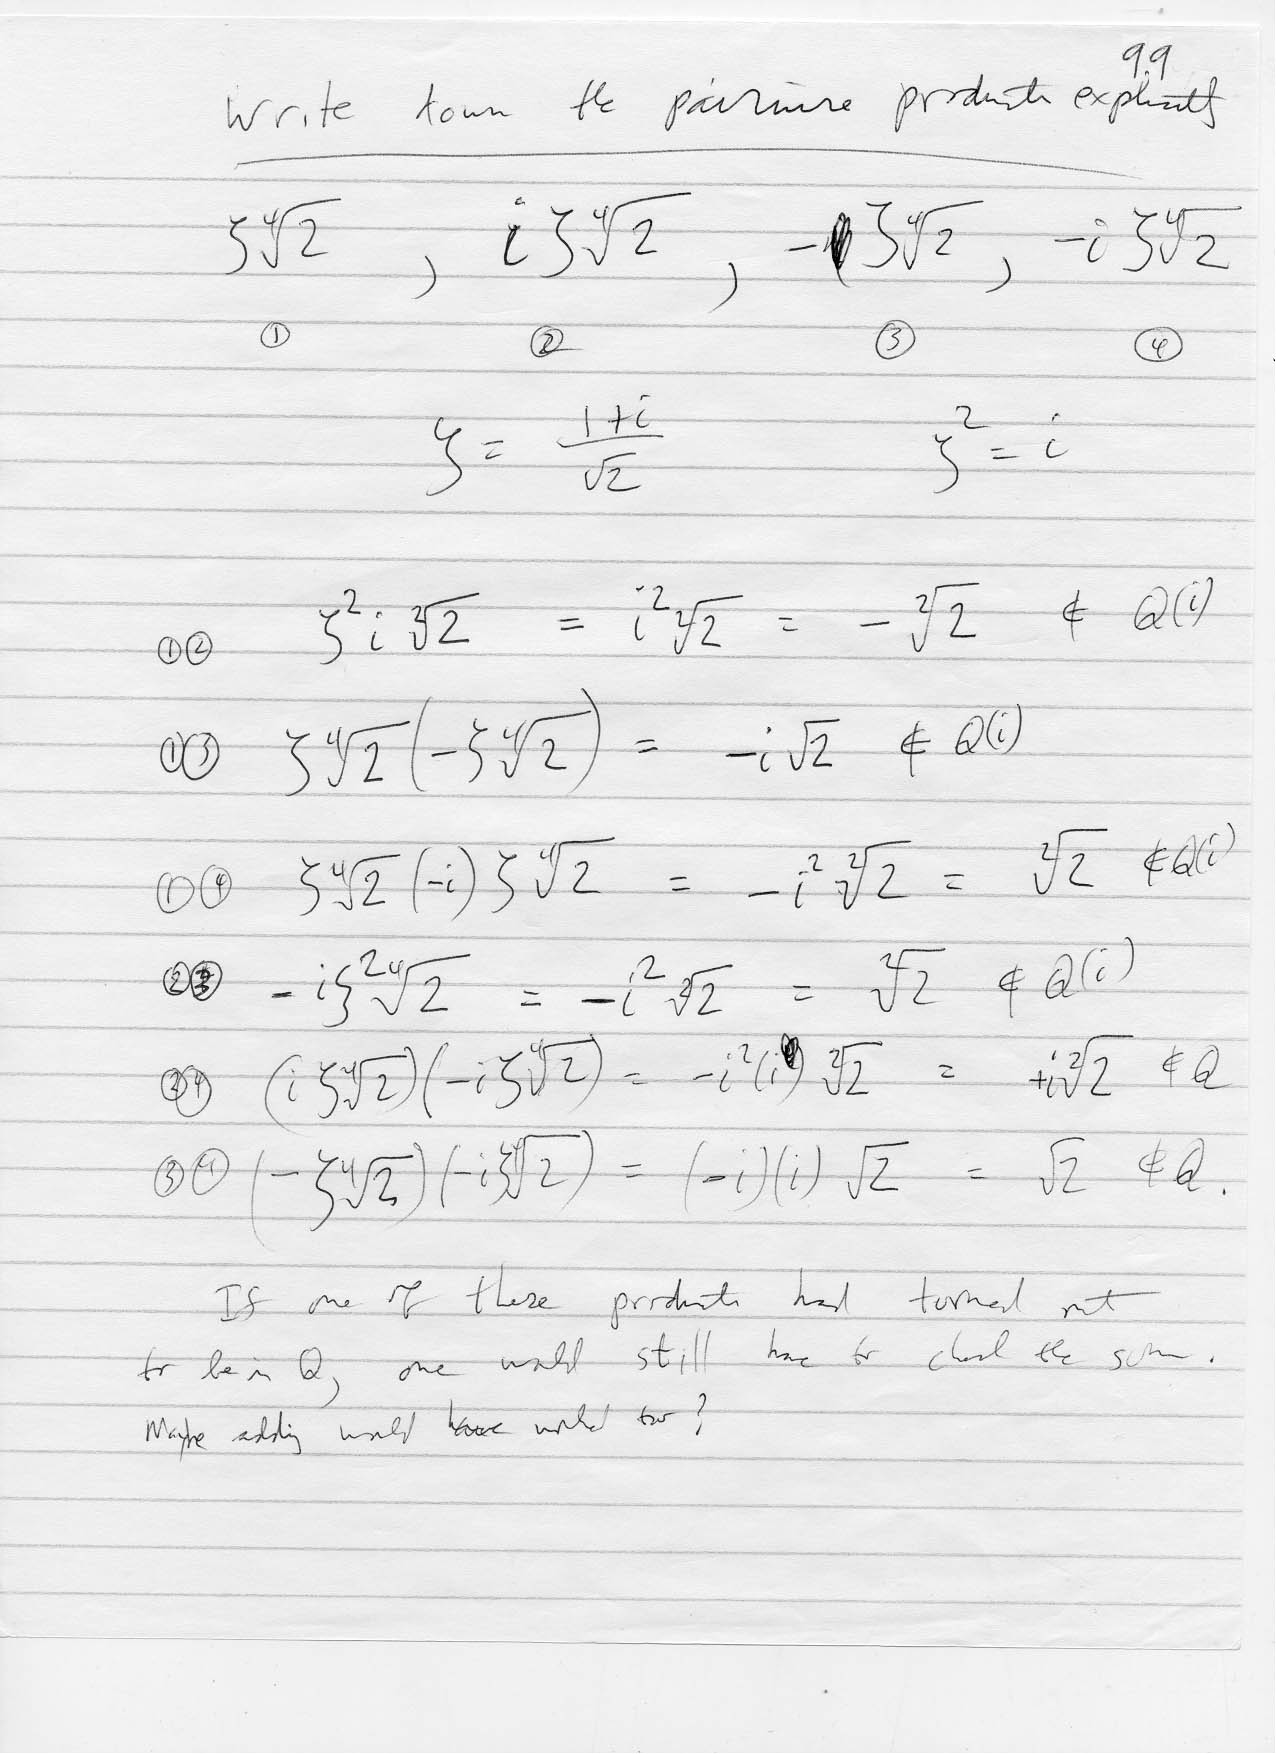 9.9
Write down the pairwise products explicitly
ζ∜2 , iζ∜2 , -ζ∜2 , -iζ∜2
① ② ③ ④
ζ = (1+i)/√2 ζ² = i
①② ζ² i ²√2 = i² ²√2 = - ²√2 ∉ Q(i)
①③ ζ∜2 (-ζ∜2) = -i√2 ∉ Q(i)
①④ ζ∜2 (-i) ζ∜2 = -i² ²√2 = ²√2 ∉ Q(i)
②③ -iζ² ∜2 = -i² ²√2 = ²√2 ∉ Q(i)
②④ (iζ∜2)(-iζ∜2) = -i²(i) ²√2 = +i ²√2 ∉ Q
③④ (-ζ∜2)(-iζ∜2) = (-i)(i) √2 = √2 ∉ Q.
If one of these products had turned out
to be in Q, one would still have to check the sum.
Maybe adding would have worked too?